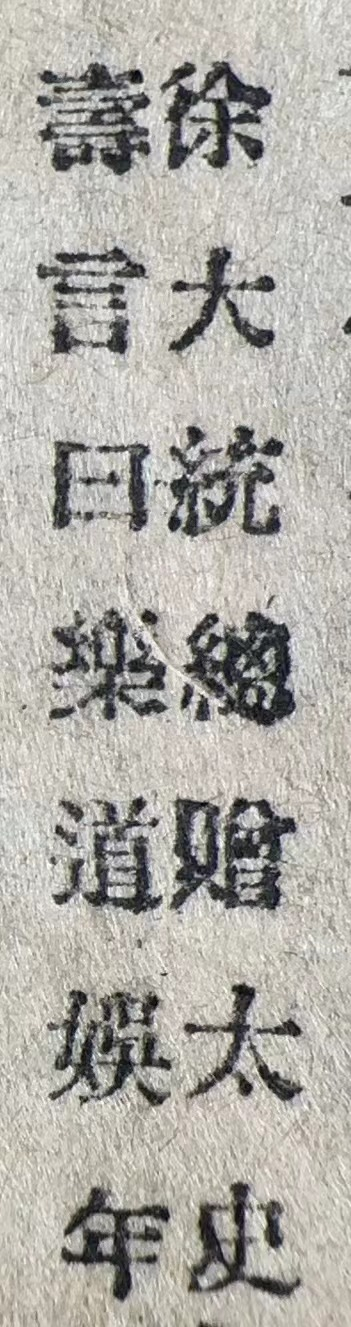 徐大統總贈太史
壽言曰樂道娛年